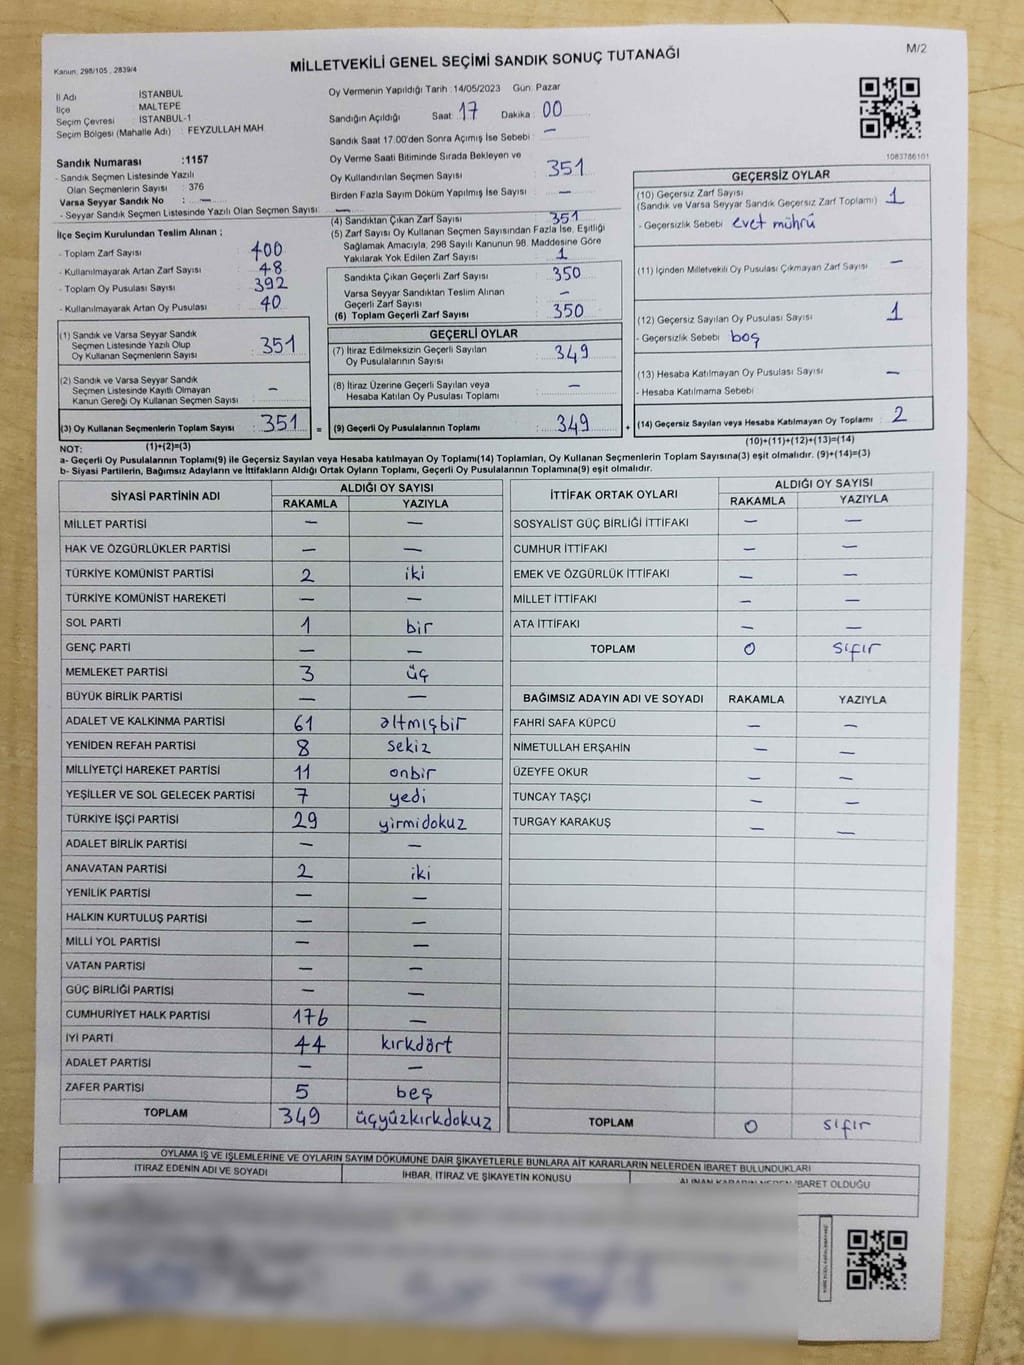 Kanun: 298/105 , 2839/4
MİLLETVEKİLİ GENEL SEÇİMİ SANDIK SONUÇ TUTANAĞI
M/2
İl Adı : İSTANBUL
İlçe : MALTEPE
Seçim Çevresi : İSTANBUL-1
Seçim Bölgesi (Mahalle Adı) : FEYZULLAH MAH.
Sandık Numarası :1157
- Sandık Seçmen Listesinde Yazılı
Olan Seçmenlerin Sayısı : 376
Varsa Seyyar Sandık No : —
- Seyyar Sandık Seçmen Listesinde Yazılı Olan Seçmen Sayısı: —
Oy Vermenin Yapıldığı Tarih :14/05/2023 Gün: Pazar
Sandığın Açıldığı Saat: 17 Dakika: 00
Sandık Saat 17.00'den Sonra Açılmış İse Sebebi : —
Oy Verme Saati Bitiminde Sırada Bekleyen ve
Oy Kullandırılan Seçmen Sayısı : 351
Birden Fazla Sayım Döküm Yapılmış İse Sayısı : —
1083766101
İlçe Seçim Kurulundan Teslim Alınan ;
- Toplam Zarf Sayısı : 400
- Kullanılmayarak Artan Zarf Sayısı : 48
- Toplam Oy Pusulası Sayısı : 392
- Kullanılmayarak Artan Oy Pusulası : 40
(1) Sandık ve Varsa Seyyar Sandık
Seçmen Listesinde Yazılı Olup
Oy Kullanan Seçmenlerin Sayısı : 351
(2) Sandık ve Varsa Seyyar Sandık
Seçmen Listesinde Kayıtlı Olmayan
Kanun Gereği Oy Kullanan Seçmen Sayısı : —
(3) Oy Kullanan Seçmenlerin Toplam Sayısı : 351 =
(4) Sandıktan Çıkan Zarf Sayısı : 351
(5) Zarf Sayısı Oy Kullanan Seçmen Sayısından Fazla İse, Eşitliği
Sağlamak Amacıyla, 298 Sayılı Kanunun 98. Maddesine Göre
Yakılarak Yok Edilen Zarf Sayısı : 1
Sandıkta Çıkan Geçerli Zarf Sayısı : 350
Varsa Seyyar Sandıktan Teslim Alınan
Geçerli Zarf Sayısı : —
(6) Toplam Geçerli Zarf Sayısı : 350
GEÇERLİ OYLAR
(7) İtiraz Edilmeksizin Geçerli Sayılan
Oy Pusulalarının Sayısı : 349
(8) İtiraz Üzerine Geçerli Sayılan veya
Hesaba Katılan Oy Pusulası Toplamı : —
(9) Geçerli Oy Pusulalarının Toplamı : 349 +
GEÇERSİZ OYLAR
(10) Geçersiz Zarf Sayısı
(Sandık ve Varsa Seyyar Sandık Geçersiz Zarf Toplamı) : 1
- Geçersizlik Sebebi evet mührü
(11) İçinden Milletvekili Oy Pusulası Çıkmayan Zarf Sayısı : —
(12) Geçersiz Sayılan Oy Pusulası Sayısı : 1
- Geçersizlik Sebebi boş
(13) Hesaba Katılmayan Oy Pusulası Sayısı : —
- Hesaba Katılmama Sebebi
(14) Geçersiz Sayılan veya Hesaba Katılmayan Oy Toplamı : 2
NOT: (1)+(2)=(3) (10)+(11)+(12)+(13)=(14)
a- Geçerli Oy Pusulaları Toplamı(9) ile Geçersiz Sayılan veya Hesaba katılmayan Oy Toplamı(14) Toplamları, Oy Kullanan Seçmenlerin Toplam Sayısına(3) eşit olmalıdır. (9)+(14)=(3)
b- Siyasi Partilerin, Bağımsız Adayların ve İttifakların Aldığı Ortak Oyların Toplamı, Geçerli Oy Pusulalarının Toplamına(9) eşit olmalıdır.
SİYASİ PARTİNİN ADI ALDIĞI OY SAYISI
RAKAMLA YAZIYLA
MİLLET PARTİSİ — —
HAK VE ÖZGÜRLÜKLER PARTİSİ — —
TÜRKİYE KOMÜNİST PARTİSİ 2 iki
TÜRKİYE KOMÜNİST HAREKETİ — —
SOL PARTİ 1 bir
GENÇ PARTİ — —
MEMLEKET PARTİSİ 3 üç
BÜYÜK BİRLİK PARTİSİ — —
ADALET VE KALKINMA PARTİSİ 61 altmışbir
YENİDEN REFAH PARTİSİ 8 sekiz
MİLLİYETÇİ HAREKET PARTİSİ 11 onbir
YEŞİLLER VE SOL GELECEK PARTİSİ 7 yedi
TÜRKİYE İŞÇİ PARTİSİ 29 yirmidokuz
ADALET BİRLİK PARTİSİ — —
ANAVATAN PARTİSİ 2 iki
YENİLİK PARTİSİ — —
HALKIN KURTULUŞ PARTİSİ — —
MİLLİ YOL PARTİSİ — —
VATAN PARTİSİ — —
GÜÇ BİRLİĞİ PARTİSİ — —
CUMHURİYET HALK PARTİSİ 176 —
İYİ PARTİ 44 kırkdört
ADALET PARTİSİ — —
ZAFER PARTİSİ 5 beş
TOPLAM 349 üçyüzkırkdokuz
İTTİFAK ORTAK OYLARI ALDIĞI OY SAYISI
RAKAMLA YAZIYLA
SOSYALİST GÜÇ BİRLİĞİ İTTİFAKI — —
CUMHUR İTTİFAKI — —
EMEK VE ÖZGÜRLÜK İTTİFAKI — —
MİLLET İTTİFAKI — —
ATA İTTİFAKI — —
TOPLAM 0 sıfır
BAĞIMSIZ ADAYIN ADI VE SOYADI RAKAMLA YAZIYLA
FAHRİ SAFA KÜPCÜ — —
NİMETULLAH ERŞAHİN — —
ÜZEYFE OKUR — —
TUNCAY TAŞÇI — —
TURGAY KARAKUŞ — —
TOPLAM 0 sıfır
OYLAMA İŞ VE İŞLEMLERİNE VE OYLARIN SAYIM DÖKÜMÜNE DAİR ŞİKAYETLERLE BUNLARA AİT KARARLARIN NELERDEN İBARET BULUNDUKLARI
İTİRAZ EDENİN ADI VE SOYADI İHBAR, İTİRAZ VE ŞİKAYETİN KONUSU ALINAN KARARIN NEDEN İBARET OLDUĞU